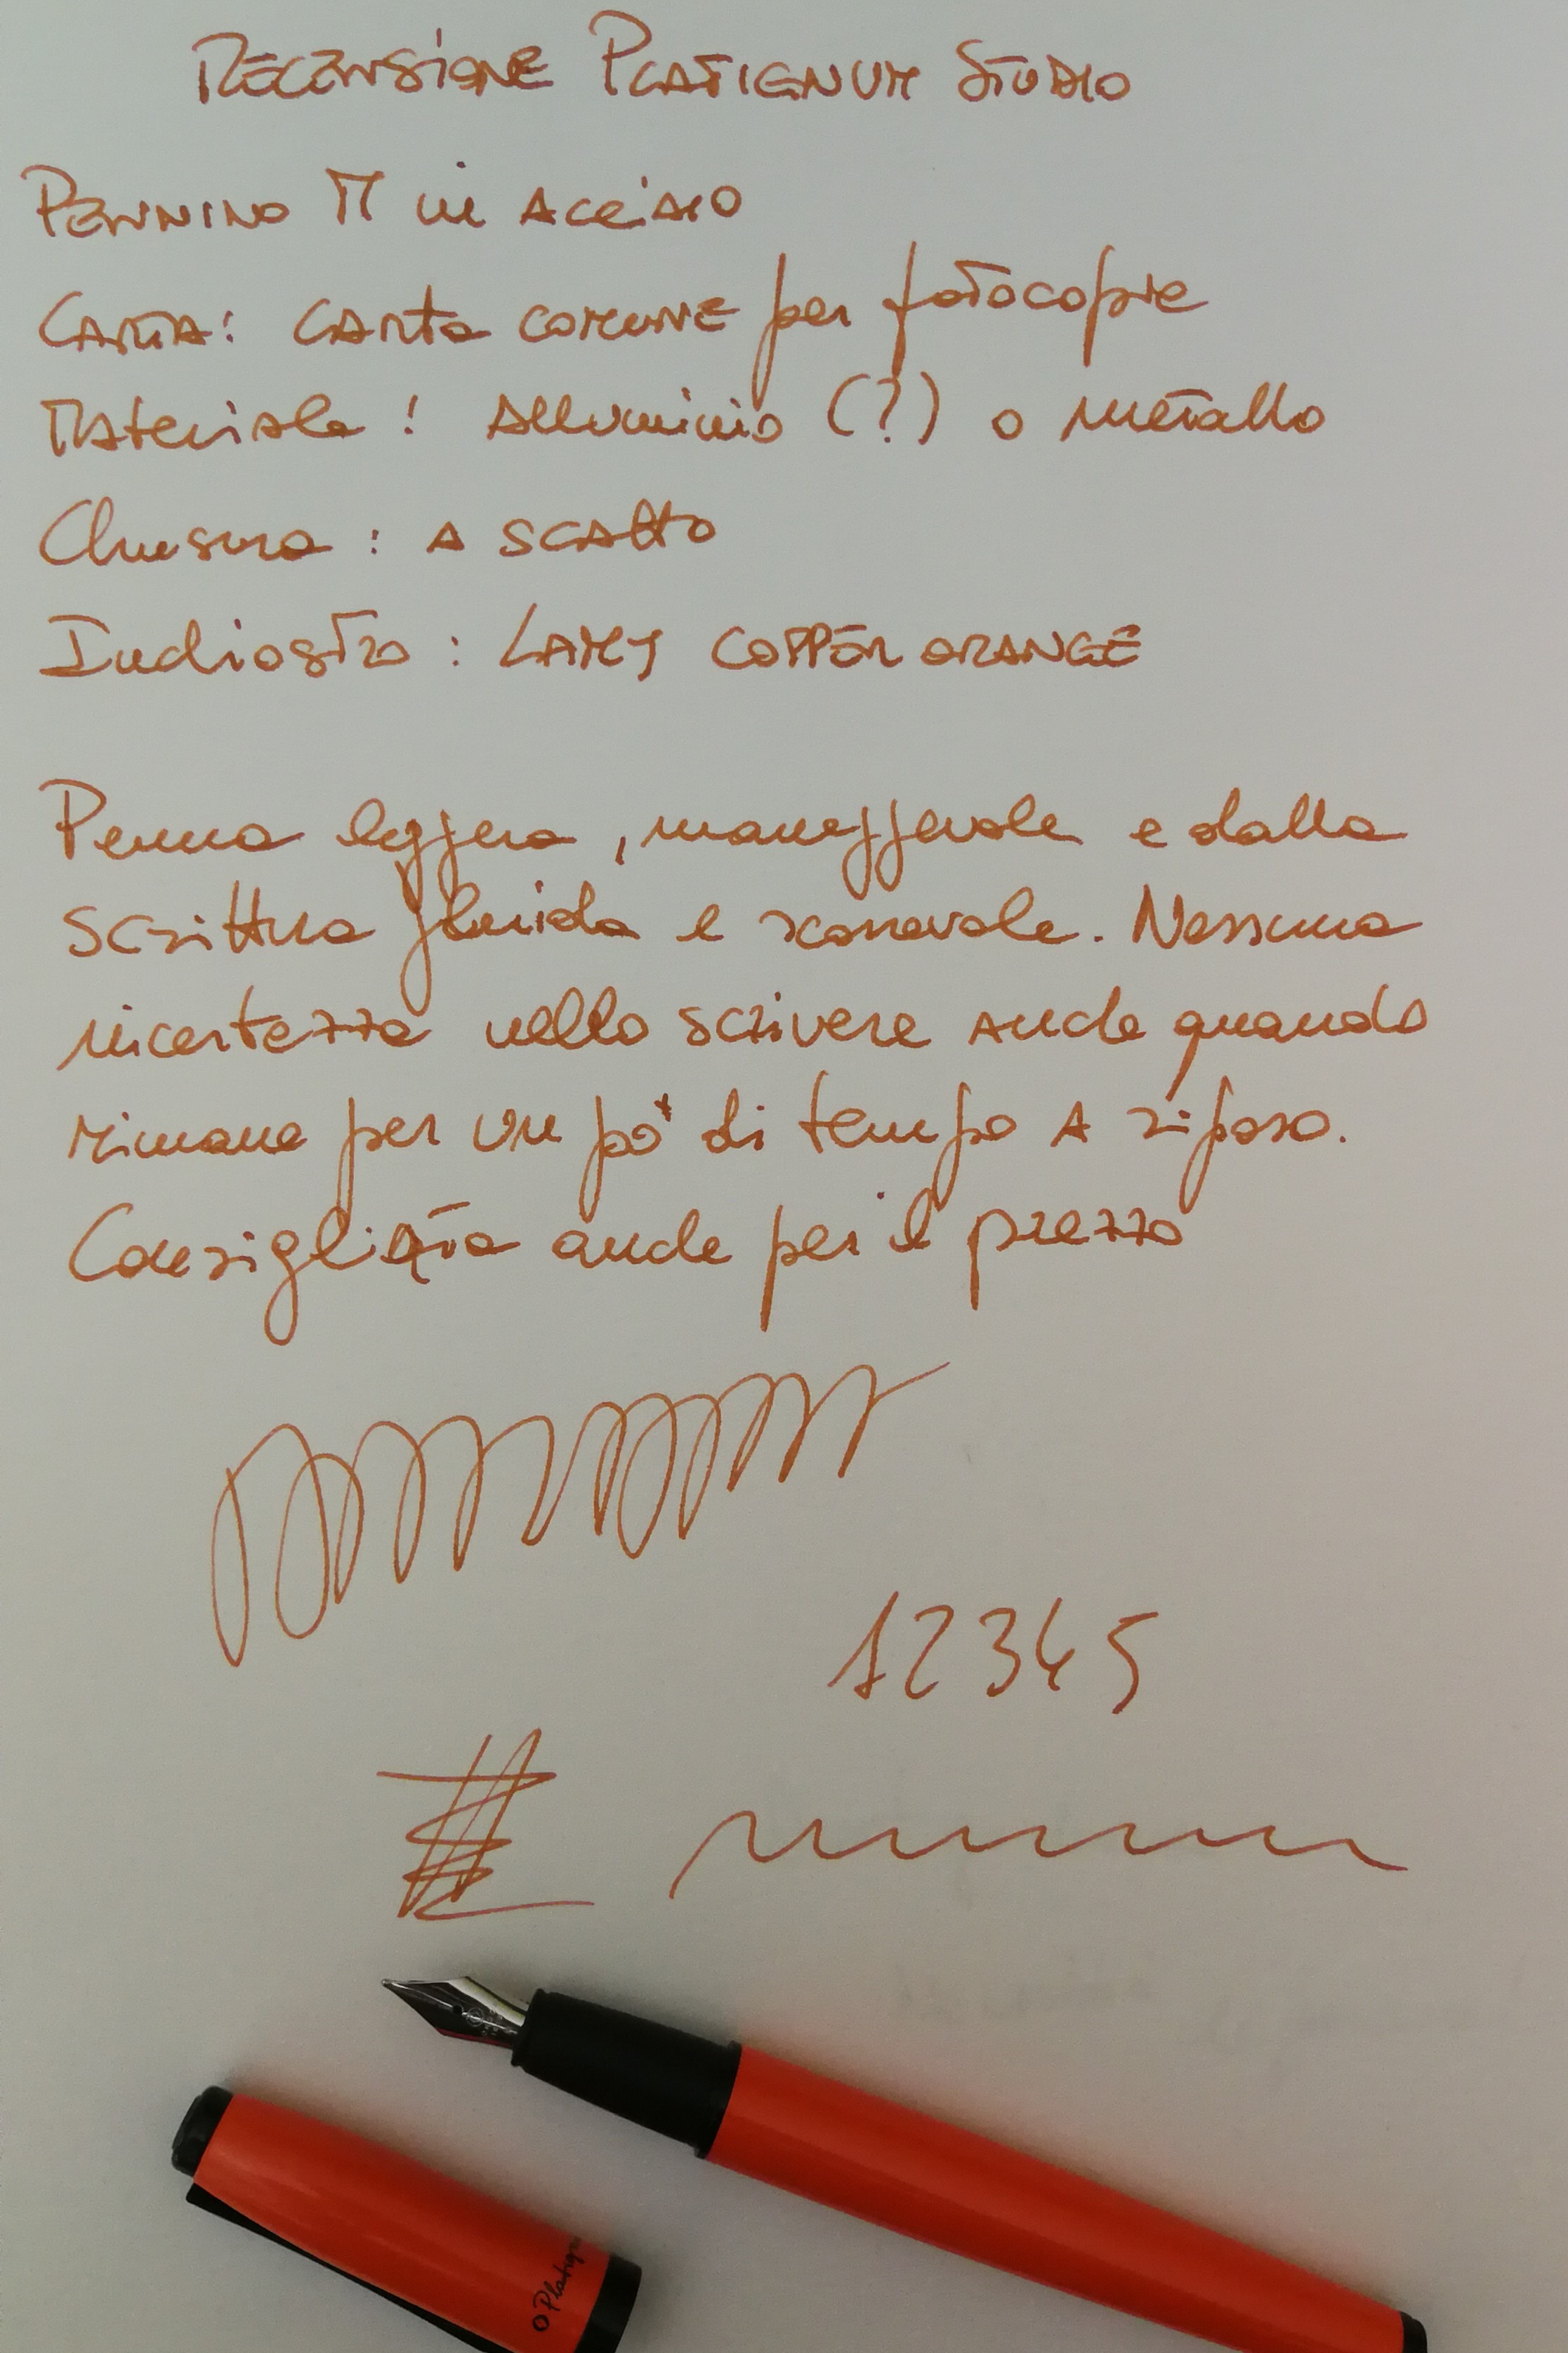 RECENSIONE PLATIGNUM STUDIO
PENNINO M in ACCIAIO
CARTA: CARTA COMUNE per fotocopie
MATERIALE: ALLUMINIO (?) o metallo
Chiusura: A SCATTO
Inchiostro: LAMY COPPER ORANGE
Penna leggera, maneggevole e dalla
scrittura fluida e scorrevole. Nessuna
incertezza nello scrivere anche quando
rimane per un po' di tempo A riposo.
Consigliata anche per il prezzo
12345
Platignu